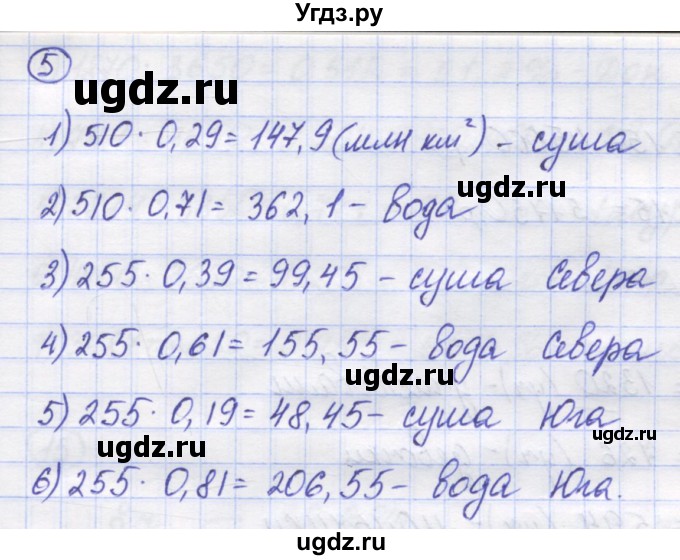 Угдз.ру
5
ugdz.ru
1) 510 · 0,29 = 147,9 (млн км²) – суша
ugdz.ru
2) 510 · 0,71 = 362,1 – вода
ugdz.ru
3) 255 · 0,39 = 99,45 – суша Севера
ugdz.ru
4) 255 · 0,61 = 155,55 – вода Севера
ugdz.ru
5) 255 · 0,19 = 48,45 – суша Юга
ugdz.ru
ugdz.ru
6) 255 · 0,81 = 206,55 – вода Юга.
ugdz.ru